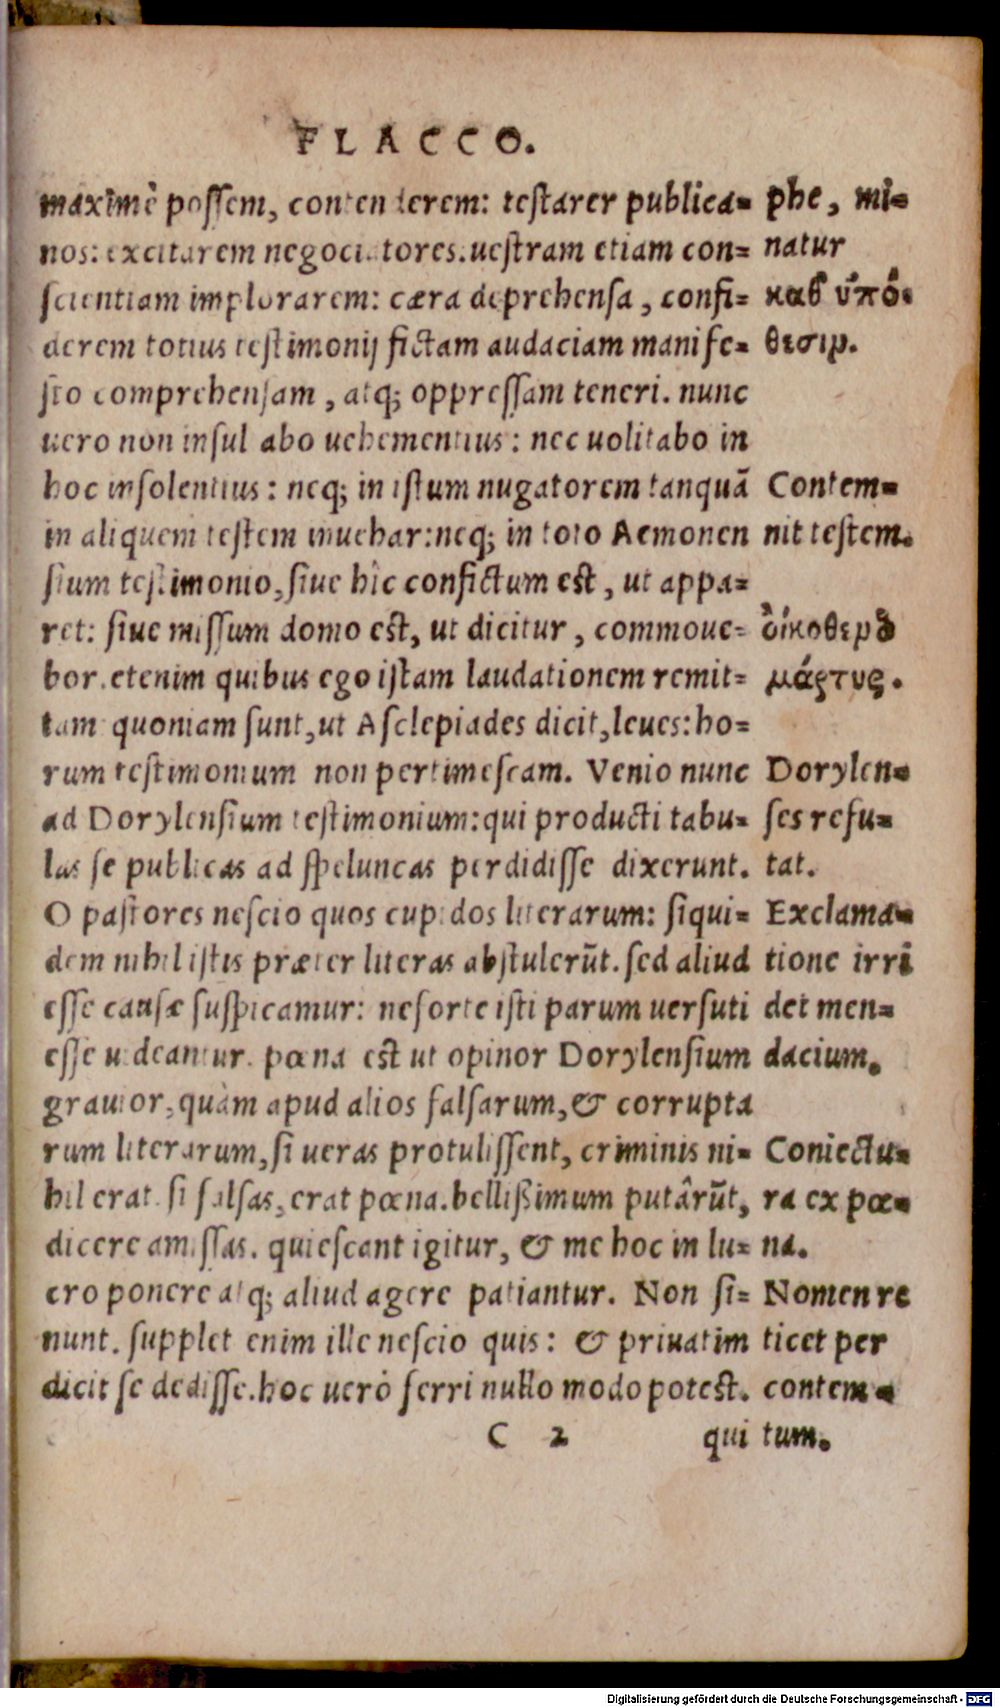 FLACCO.
maxĩmè possem, contenderem: testarer publica=
nos: excitarem negociatores. uestram etiam con=
scientiam implorarem: cæra deprehensa, confi=
derem totius testimonij fictam audaciam manife=
sto comprehensam, atq; oppressam teneri. nunc
uero non insultabo uehementius: nec uolitabo in
hoc insolentius: neq; in istum nugatorem tanquã
in aliquem testem inuehar: neq; in toto Aemonen
sium testimonio, siue hîc confictum est, ut appa=
ret: siue missum domo est, ut dicitur, commoue=
bor. etenim quibus ego istam laudationem remit=
tam quoniam sunt, ut Asclepiades dicit, leues: ho=
rum testimonium non pertimescam. Venio nunc
ad Dorylensium testimonium: qui producti tabu=
las se publicas ad speluncas perdidisse dixerunt.
O pastores nescio quos cupidos literarum: siqui=
dem nihil istis præter literas abstulerũt. sed aliud
esse causæ suspicamur: neforte isti parum uersuti
esse uideantur. pœna est ut opinor Dorylensium
grauior, quàm apud alios falsarum, & corrupta
rum literarum, si ueras protulissent, criminis ni=
hil erat. si falsas, erat pœna. bellißimum putârũt,
dicere amissas. quiescant igitur, & me hoc in lu=
cro ponere atq; aliud agere patiantur. Non si=
nunt. supplet enim ille nescio quis: & priuatim
dicit se dedisse. hoc uerò ferri nullo modo potest.
C 2 qui
phe, mi=
natur
καθ ὑπό=
θεσιν.
Contem=
nit testem.
ὀίκοθεν ὁ
μάρτυς.
Dorylen=
ses refu=
tat.
Exclama=
tione irri
det men=
dacium.
Coniectu=
ra ex pœ=
na.
Nomen re
ticet per
contem=
tum.
Digitalisierung gefördert durch die Deutsche Forschungsgemeinschaft - DFG